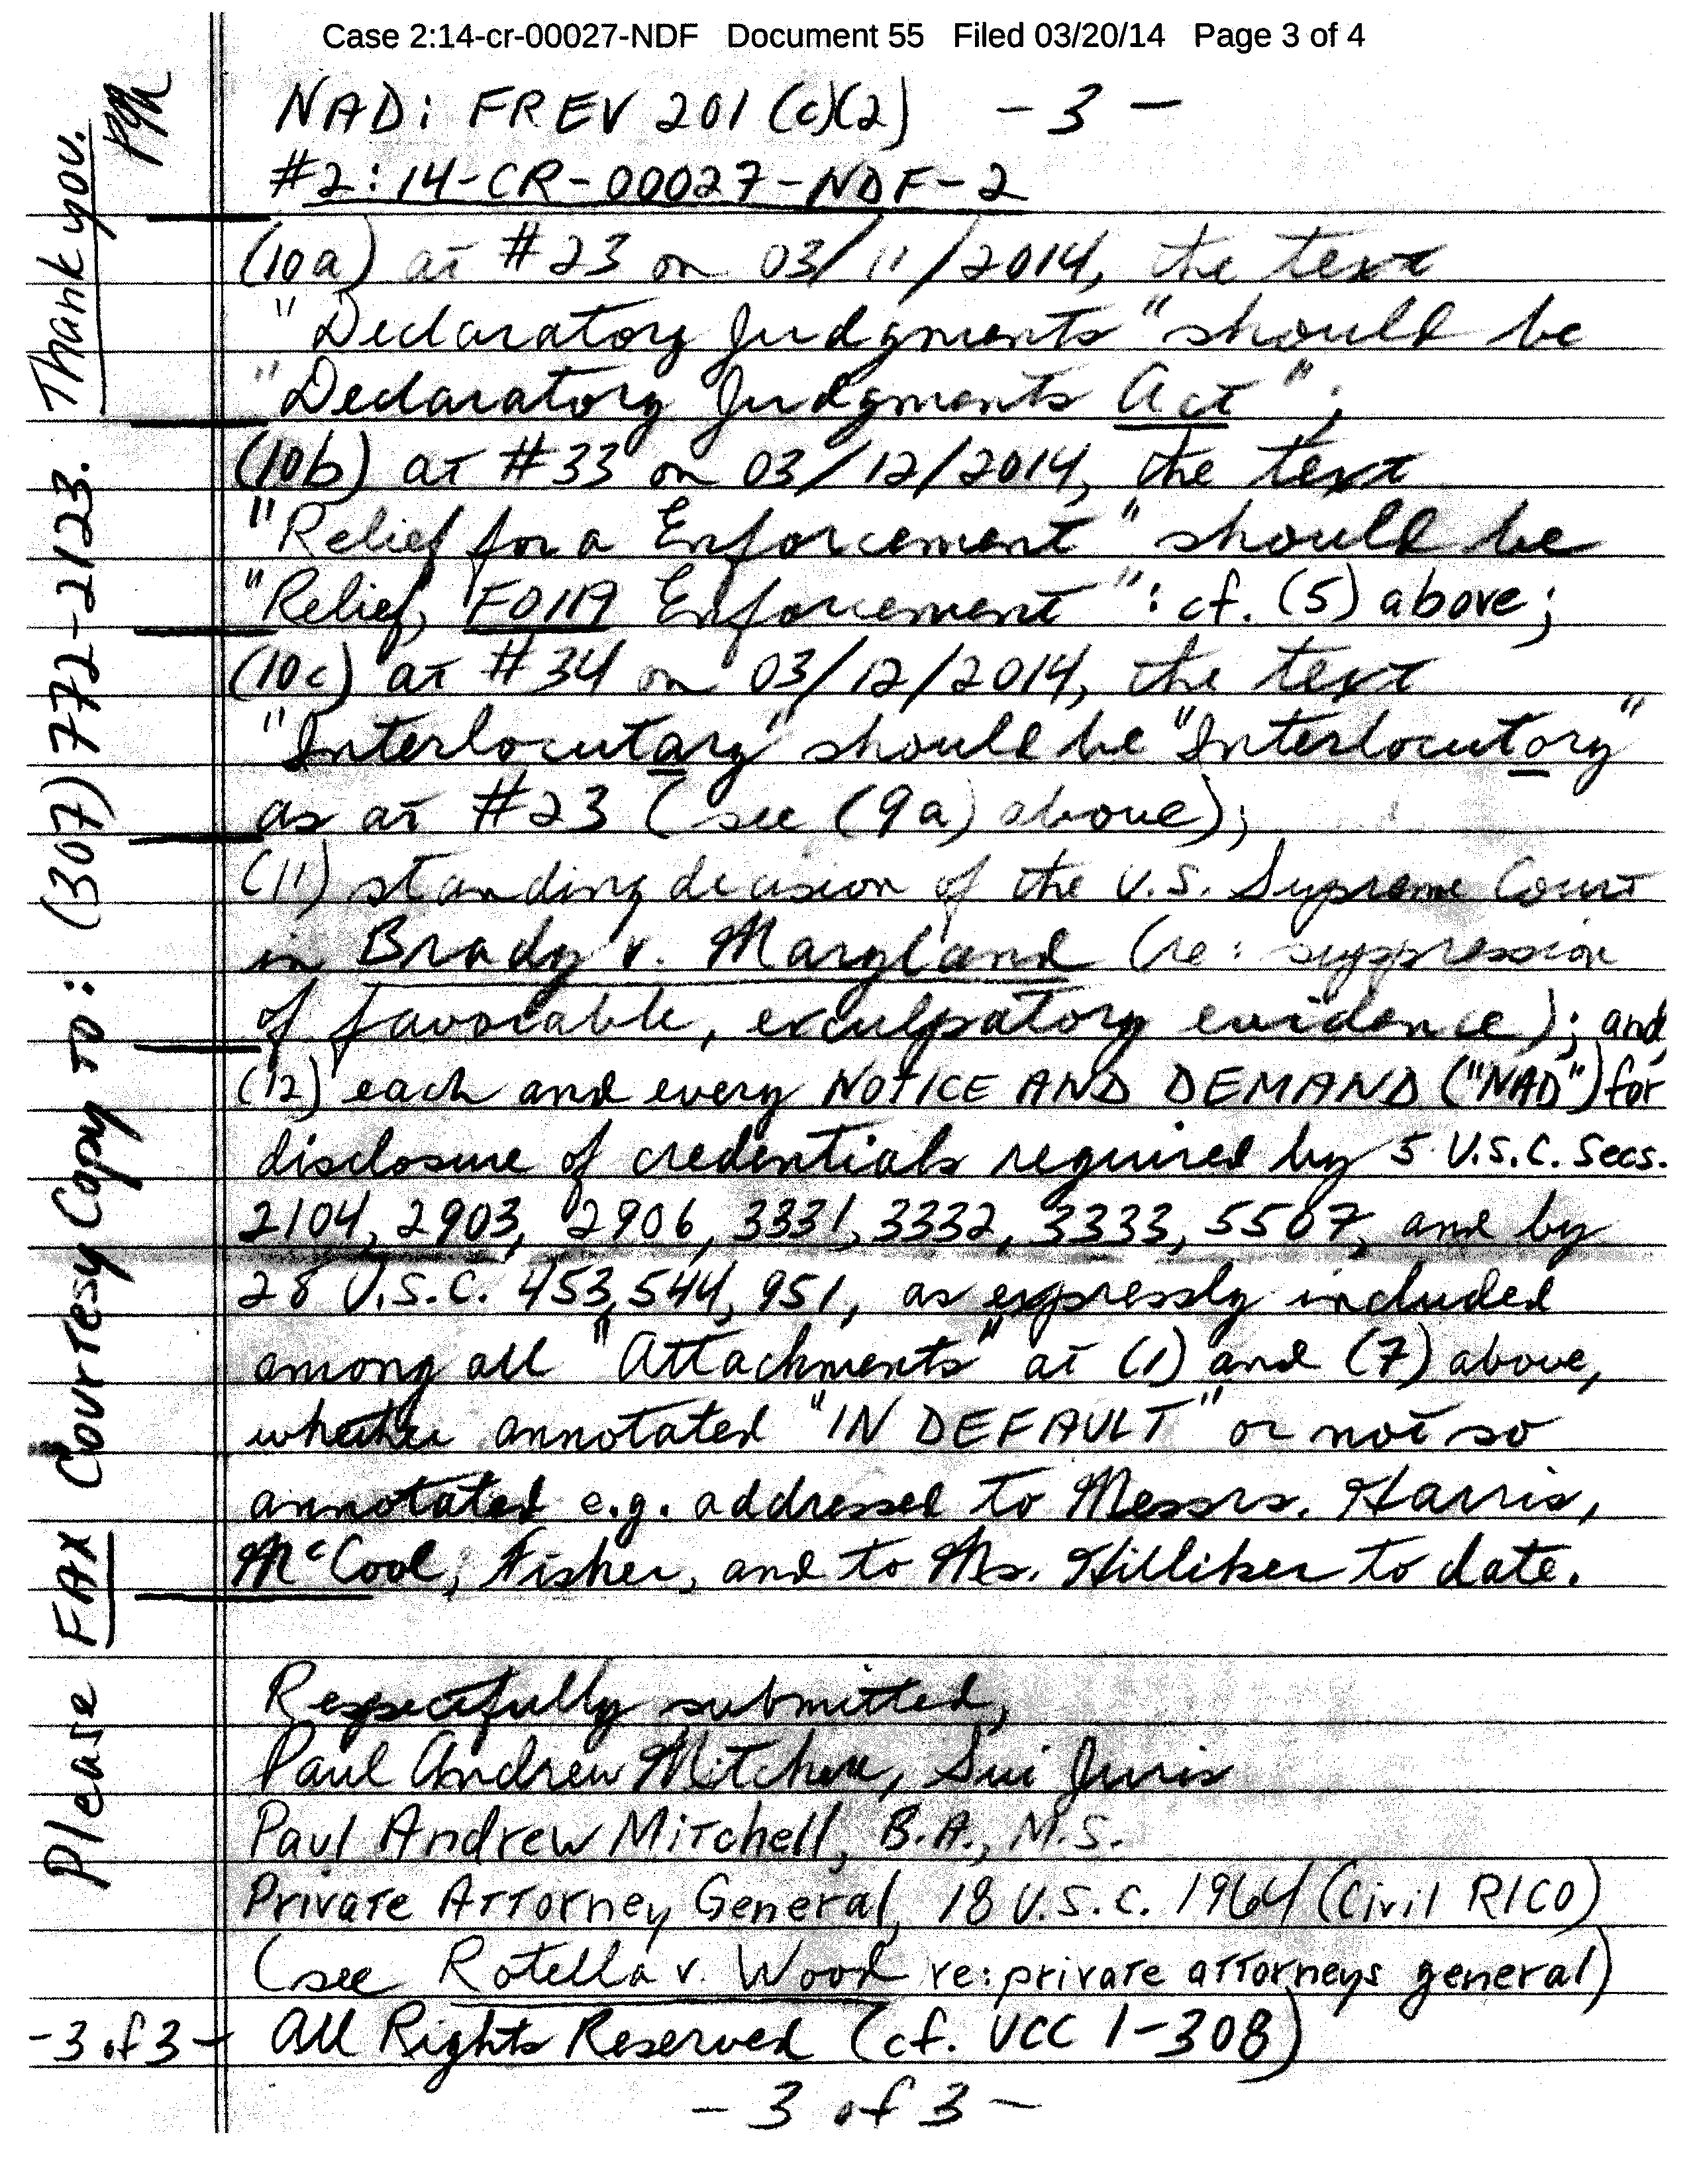 Case 2:14-cr-00027-NDF Document 55 Filed 03/20/14 Page 3 of 4
NAD: FREV 201 (c)(2) - 3 -
#2: 14-CR-00027-NDF-2
(10a) at #23 on 03/11/2014, the text
"Declaratory Judgments" should be
"Declaratory Judgments Act";
(10b) at #33 on 03/12/2014, the text
"Relief for a Enforcement" should be
"Relief, FOIA Enforcement": cf. (5) above;
(10c) at #34 on 03/12/2014, the text
"Interlocutary" should be "Interlocutory"
as at #23 (see (9a) above);
(11) standing decision of the U.S. Supreme Court
in Brady v. Maryland (re: suppression
of favorable, exculpatory evidence); and,
(12) each and every NOTICE AND DEMAND ("NAD") for
disclosure of credentials required by 5 U.S.C. Secs.
2104, 2903, 2906, 3331, 3332, 3333, 5507, and by
28 U.S.C. 453, 544, 951, as expressly included
among all "Attachments" at (1) and (7) above,
whether annotated "IN DEFAULT" or not so
annotated e.g. addressed to Messrs. Harris,
McCool, Fisher, and to Ms. Hilliker to date.
Respectfully submitted,
Paul Andrew Mitchell, Sui Juris
Paul Andrew Mitchell, B.A., M.S.
Private Attorney General, 18 U.S.C. 1964 (Civil RICO)
(see Rotella v. Wood re: private attorneys general)
-3 of 3- All Rights Reserved (cf. UCC 1-308)
- 3 of 3 -
Please FAX Courtesy Copy to: (307) 772-2123. Thank you.